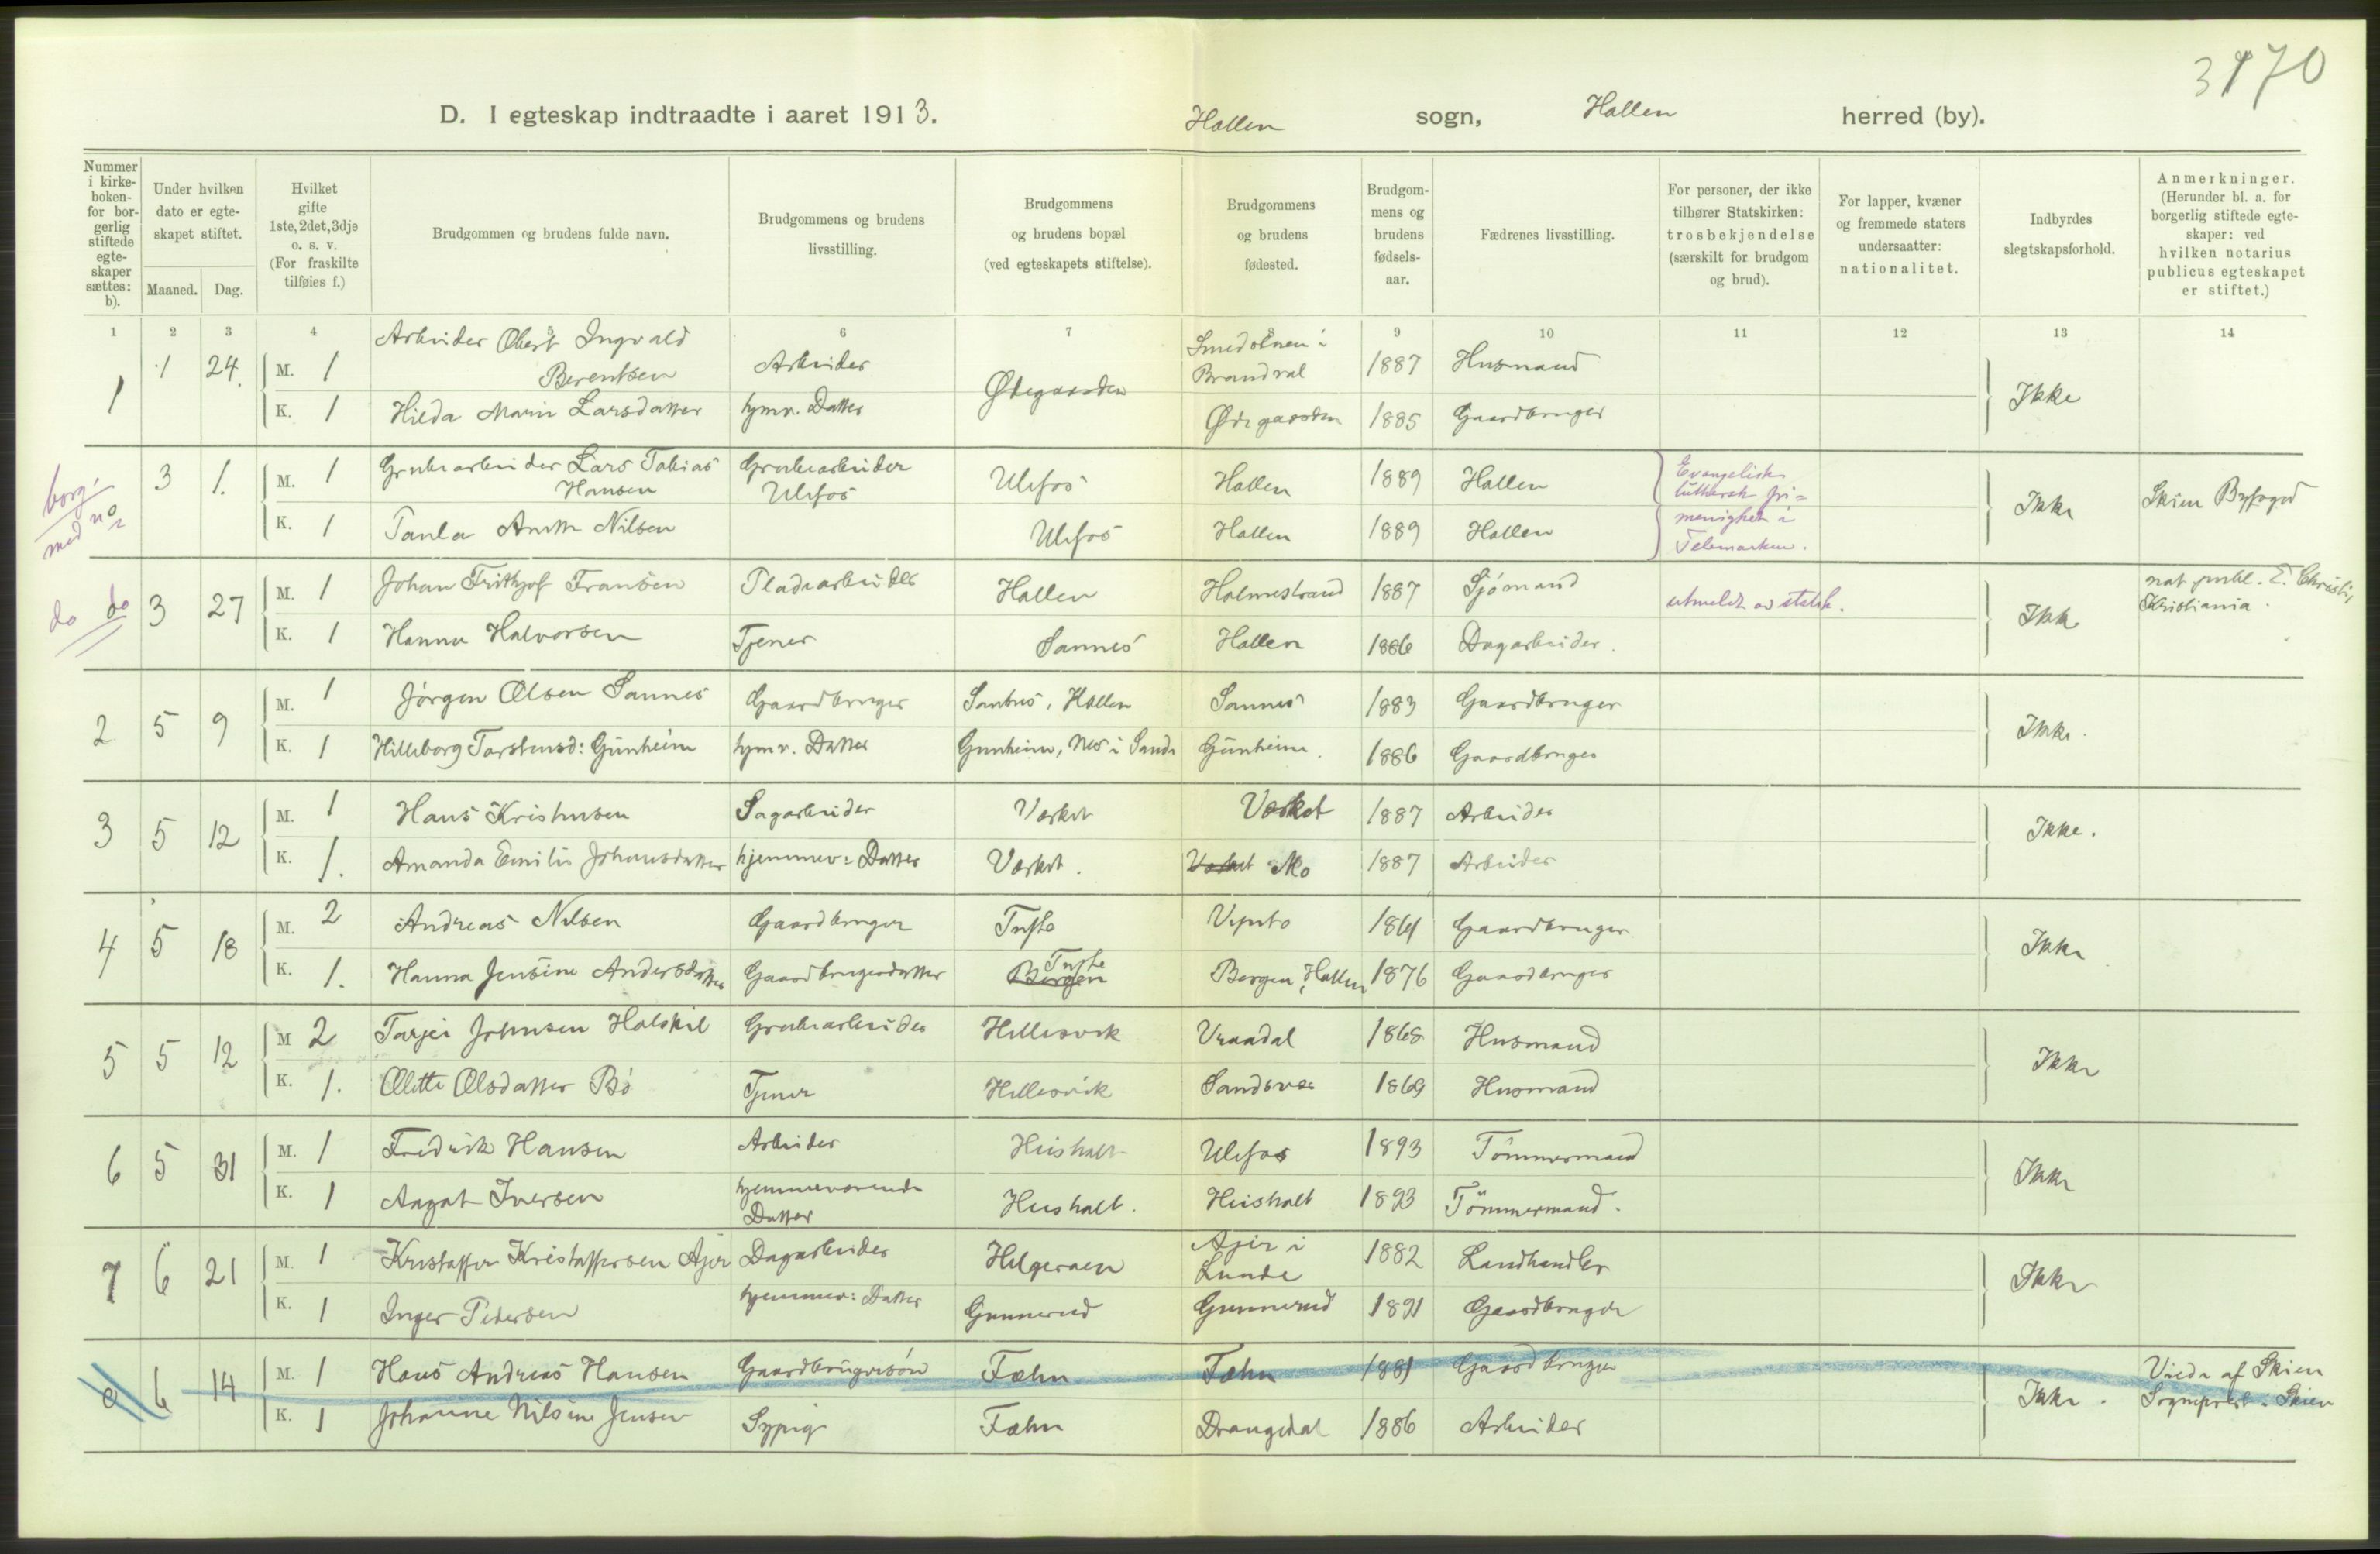 3170
D. I egteskap indtraadte i aaret 1913. Hollen sogn, Hollen herred (by).
Nummer i kirkeboken- for borgerlig stiftede egteskaper sættes: b).
Under hvilken dato er egteskapet stiftet.
Maaned. Dag.
Hvilket gifte 1ste, 2det, 3dje o. s. v. (For fraskilte tilføies f.)
Brudgommen og brudens fulde navn.
Brudgommens og brudens livsstilling.
Brudgommens og brudens bopæl (ved egteskapets stiftelse).
Brudgommens og brudens fødested.
Brudgommens og brudens fødselsaar.
Fædrenes livsstilling.
For personer, der ikke tilhører Statskirken: trosbekjendelse (særskilt for brudgom og brud).
For lapper, kvæner og fremmede staters undersaatter: nationalitet.
Indbyrdes slegtskapsforhold.
Anmerkninger. (Herunder bl. a. for borgerlig stiftede egteskaper: ved hvilken notarius publicus egteskapet er stiftet.)
1 2 3 4 5 6 7 8 9 10 11 12 13 14
1 1 24. M. 1 Arbeider Obert Ingvald Berentsen Arbeider Ødegaarden i Brandval 1887 Husmand Ikke
K. 1 Hilda Marie Larsdatter hjmv. Datter Ødegaarden 1885 Gaardbruger
borg. med no 3 1. M. 1 Grubearbeider Lars Tobias Hansen Grubearbeider Ulefos Ulefos Hollen 1889 Hollen Evangelisk luthersk frimenighet i Telemarken. Ikke Skien Byfoged
K. 1 Paula Anette Nilsen Ulefos Hollen 1889 Hollen
do do 3 27 M. 1 Johan Frithjof Fransen Pladearbeider Hollen Holmestrand 1887 Sjømand utmeldt av statsk. Ikke not. publ. E. Christie, Kristiania.
K. 1 Hanna Halvorsen Tjener Sannes Hollen 1886 Dagarbeider.
2 5 9 M. 1 Jörgen Olsen Sannes Gaardbruger Sannes, Hollen Sannes 1883 Gaardbruger Ikke.
K. 1 Hilleborg Torstensd: Gunheim hjmv. Datter Gunheim, Nes i Gunheim. 1886 Gaardbruger
3 5 12 M. 1 Hans Kristensen Sagarbeider Værket Værket 1887 Arbeider Ikke.
K. 1. Amanda Emilie Johansdatter hjemmev: Datter Værket. Værket Mo 1887 Arbeider
4 5 18 M. 2 Andreas Nilsen Gaardbruger Tufte Vipeto 1861 Gaardbruger Ikke
K. 1. Hanna Jensine Andersdatter Gaardbrugerdatter Bergen Tufte Bergen, Hollen 1876 Gaardbruger
5 5 12 M 2 Tarjei Johnsen Halskil Grubearbeider Hellesvik Vraadal 1868 Husmand Ikke
K. 1. Olette Olsdatter Bö Tjener Hellesvik Sandsvær 1869 Husmand
6 5 31 M. 1 Fredrik Hansen Arbeider Heishalt Ulefos 1893 Tömmermand Ikke
K. 1 Aagot Iversen hjemmeværende Datter Heishalt. Heishalt 1893 Tömmermand.
7 6 21 M. 1 Kristoffer Kristoffersen Ajer Dagarbeider Helgeraen Ajer i Lunde 1882 Landhandler Ikke
K. 1 Inger Pedersen hjemmev: Datter Gunnerud Gunnerud 1891 Gaardbruger
8 6 14 M. 1 Hans Andreas Hansen Gaardbrugersön Fæhn Fæhn 1881 Gaardbruger Ikke. Viede af Skien Sogneprest i Skien
K. 1 Johanne Nilsine Jensen Sypig Fæhn Drangedal 1886 Arbeider